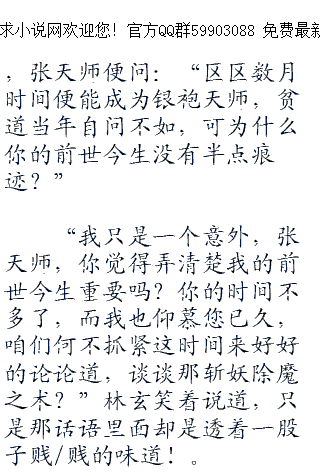 求小说网欢迎您！官方QQ群59903088 免费最新
，张天师便问：“区区数月
时间便能成为银袍天师，贫
道当年自问不如，可为什么
你的前世今生没有半点痕
迹？”
“我只是一个意外，张
天师，你觉得弄清楚我的前
世今生重要吗？你的时间不
多了，而我也仰慕您已久，
咱们何不抓紧这时间来好好
的论论道，谈谈那斩妖除魔
之术？”林玄笑着说道，只
是那话语里面却是透着一股
子贱/贱的味道！。